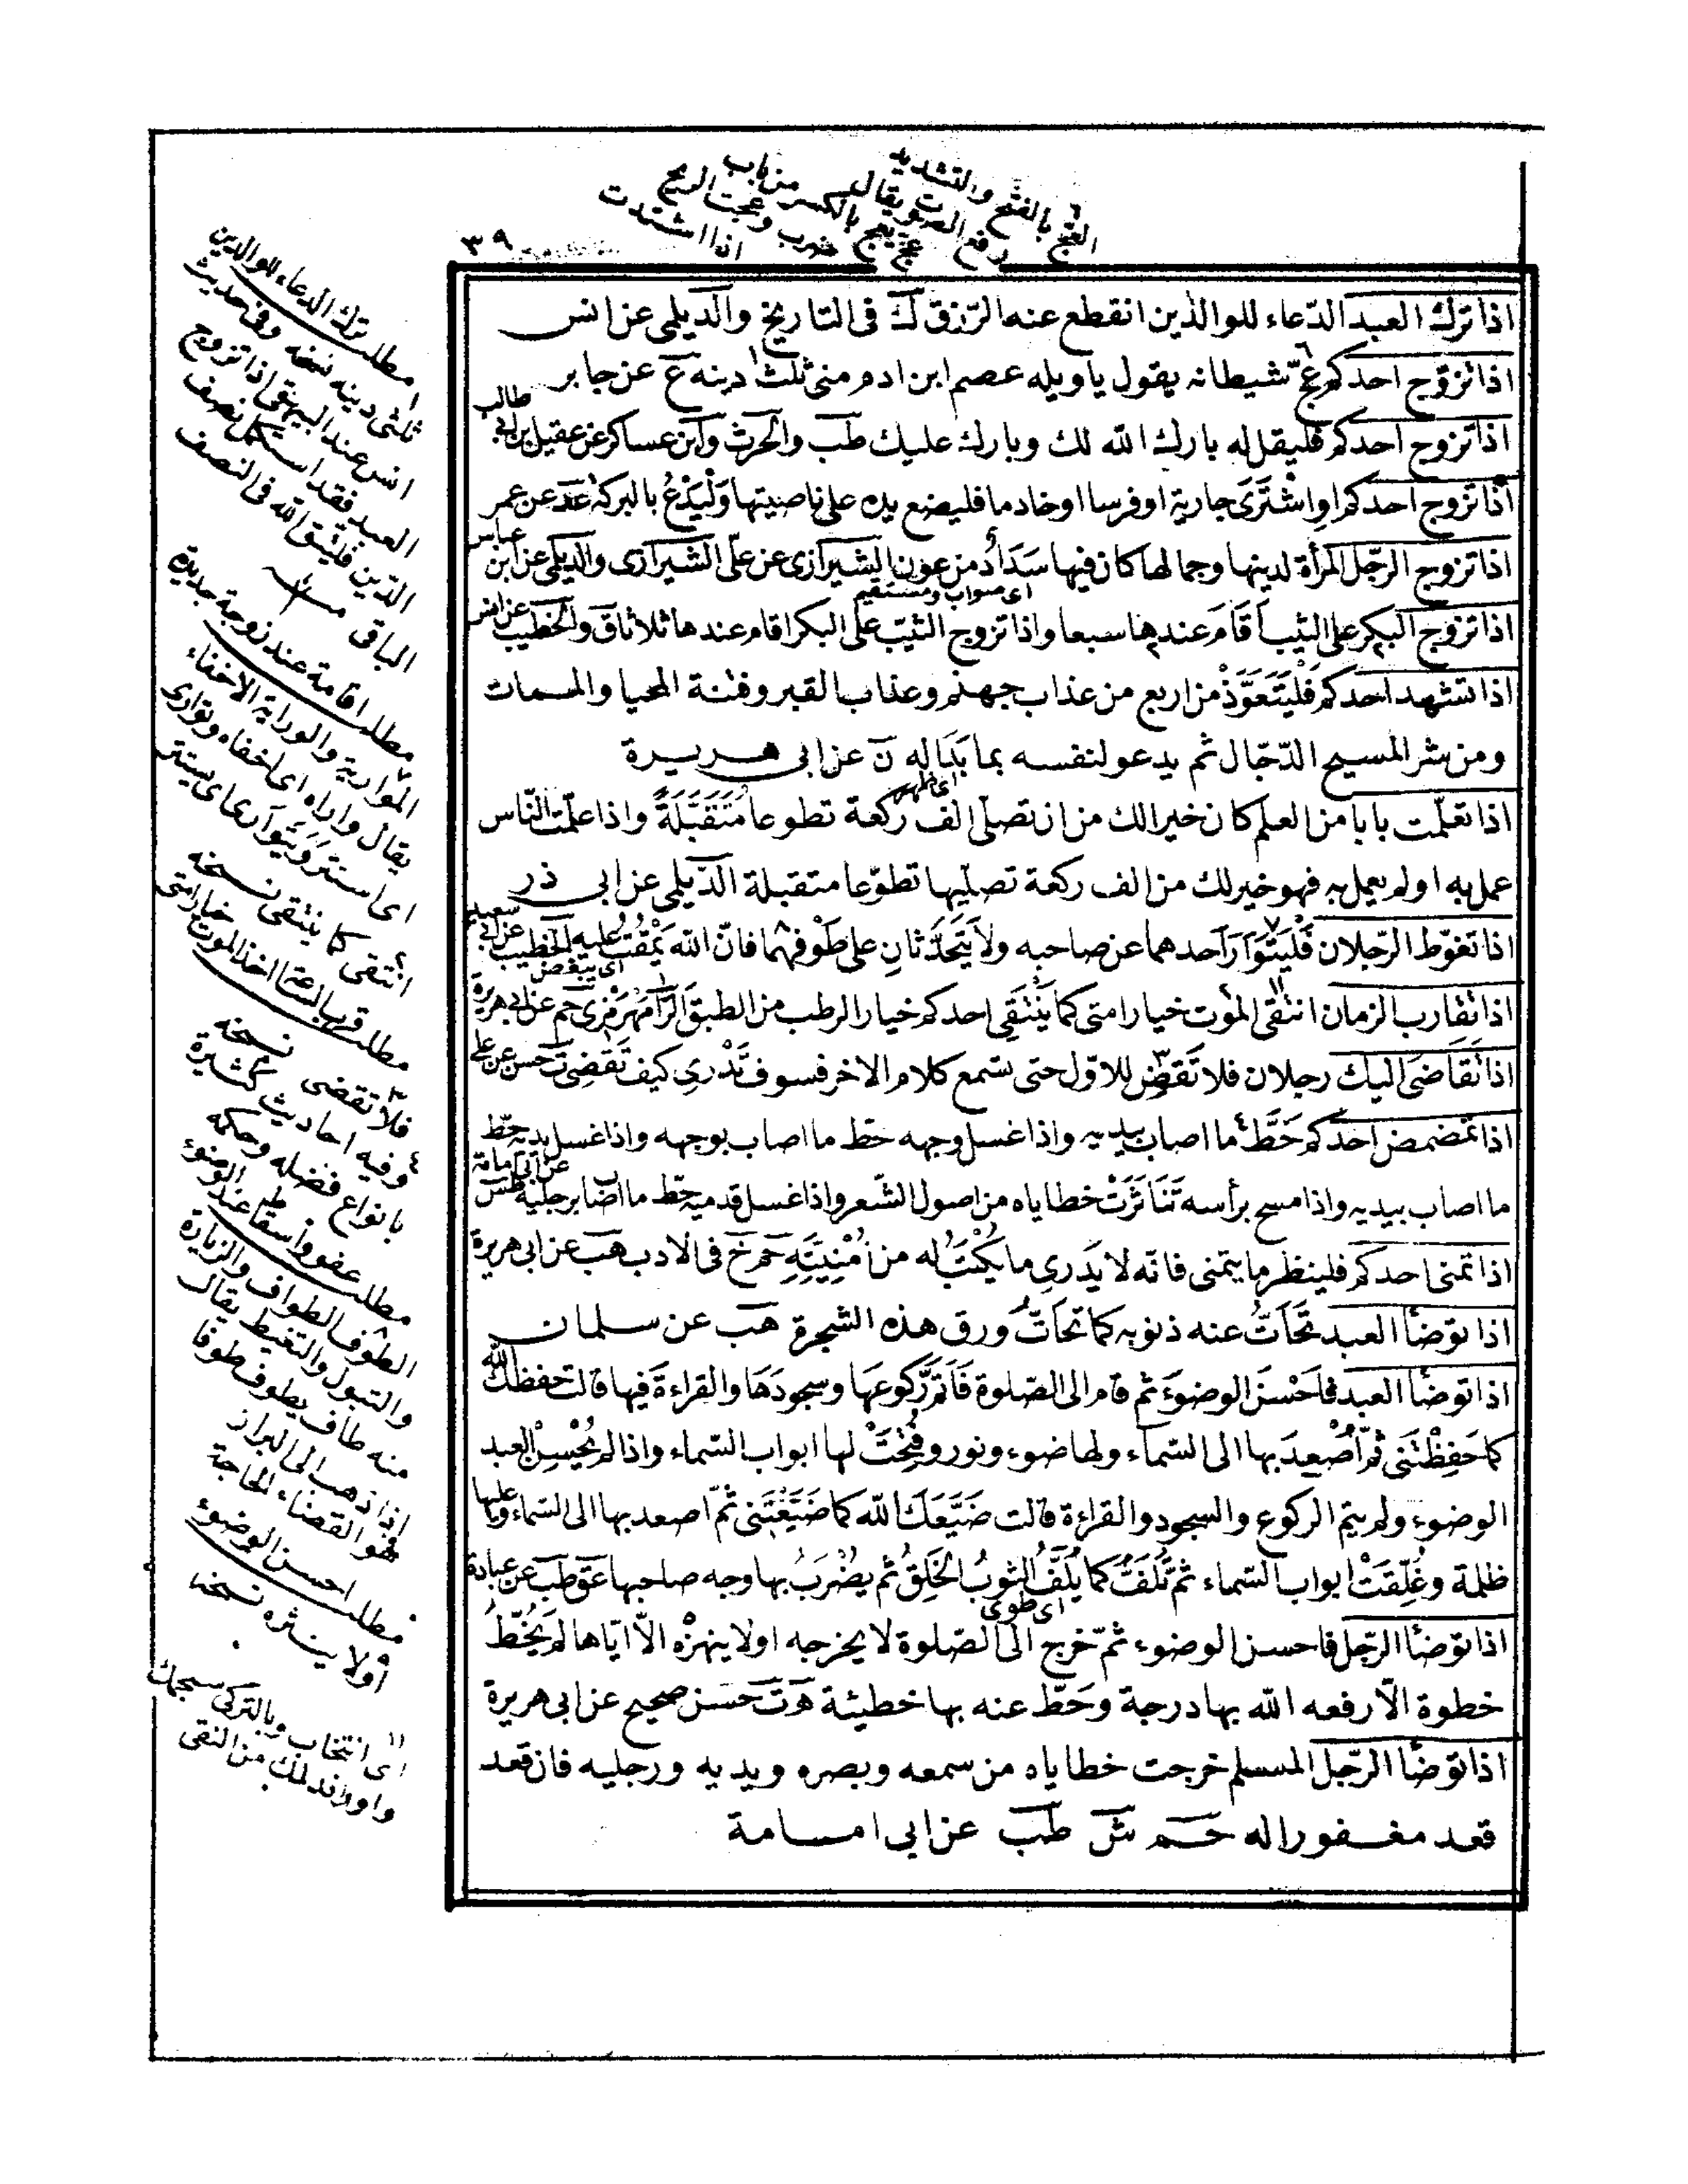 العج بالفتح والتشديد
رفع الصوت يقال
عج يعج بالكسر من باب
ضرب وعجت الريح
اذا اشتدت
٣٩
اذا ترك العبد الدّعاء للوالذين انقطع عنه الرّزق ك فى التاريخ والديلمى عن انس
اذا تزوّج احدكم عجّ شيطانه يقول ياويله عصم ابن ادم منى ثلث دينه ع عن جابر
اذا تزوج احدكم فليقل له بارك الله لك وبارك عليك طب والحرث وابن عساكر عن عقيل بن ابى طالب
اذا تزوج احدكم او اشْتَرَى جارية او فرسا او خادما فليضع يده على ناصيتها وَلْيَدْعُ بالبركة عد عن عمر
اذا تزوج الرّجل المرأة لدينها وجمالها كان فيها سَدَادٌ من عون الشيرازى عن علىّ الشيرازى والديلمى عن ابن عباس
اى صواب ومستقيم
اذا تزوج البكر على الثيب اَقَامَ عندها سبعا واذا تزوج الثيّب على البكر اقام عندها ثلاثا ق والخطيب عن انس
اذا تشهد احدكم فَلْيَتَعَوَّذْ من اربع من عذاب جهنم وعذاب القبر وفتنة المحيا والممات
ومن شر المسيح الدّجّال ثم يدعو لنفسه بما بَدَا له ن عن ابى هريرة
اى ظهر
اذا تعلّمت بابا من العلم كان خيرا لك من ان تصلّى الف ركعة تطوعا مُتَقَبَّلَةً واذا علّمت النّاس
عمل به اولم يعمل به فهو خير لك من الف ركعة تصلّيها تطوّعا متقبلة الدّيلمى عن ابى ذر
اذا تغوّط الرّجلان فَلْيَتَوَارَ احدهما عن صاحبه ولا يَتَحَدَّثَانِ على طَوْفهما فانّ الله يَمْقُتُ عليه الخطيب عن ابى سعيد
اى يبغض
اذا تقارب الزمان انتقى الموت خيار امتى كما يَنْتَقِى احدكم خيار الرطب من الطبق الرَّامَهُرْمُزِى حم عن ابى هريرة
اذا تَقَاضَى اليك رجلان فلا تَقْضِ للاوّل حتى تسمع كلام الاخر فسوف تَدْرِى كيف تَقْضِى ت حسن عن على
اذا تمضمض احدكم حَطَّ ما اصاب بيديه واذا غسل وجهه حط ما اصاب بوجهه واذا غسل يديه حطّ
ما اصاب بيديه واذا مسح برأسه تَنَاثَرَتْ خطاياه من اصول الشّعر واذا غسل قدميه حط ما اصاب برجليه طس عن ابى امامة
اذا تمنى احدكم فلينظر ما يتمنى فانّه لا يَدْرِى ما يُكْتَبُ له من اُمْنِيَّتِهِ حم خ فى الادب هب عن ابى هريرة
اذا توضأ العبد تَحَاتُّ عنه ذنوبه كما تحاتُّ ورق هذه الشجرة هب عن سلمان
اذا توضأ العبد فاَحْسَنَ الوضوءَ ثم قام الى الصّلوة فَاَتَمَّ ركوعَهَا وسجودَهَا والقراءةَ فيها قالت حفظك الله
كما حَفِظْتَنى ثمّ اُصْعِدَ بها الى السّماء ولها ضوء ونور وفُتِحَتْ لها ابواب السّماء واذا لم يُحْسِنْ العبد
الوضوء ولم يتم الركوع والسجود والقراءة قالت ضَيَّعَكَ الله كما ضَيَّعْتَنى ثمّ اصعد بها الى السّماء وعليها
ظلمة وغُلِّقَتْ ابواب السّماء ثم تُلَفُّ كما يُلَفُّ الثوبُ الخَلِقُ ثم يُضْرَبُ بها وجه صاحبها عق طب عن عبادة
اى طوى
اذا توضأ الرّجل فاحسن الوضوء ثمّ خرج الى الصّلوة لا يخرجه اولا ينهزه الاّ ايّاها لم يَخْطُ
خطوة الاّ رفعه الله بها درجة وحَطّ عنه بها خطيئة ه ت حسن صحيح عن ابى هريرة
اذا توضأ الرّجل المسلم خرجت خطاياه من سمعه وبصره ويديه ورجليه فان قعد
قعد مغفورا له حم ش طب عن ابى امامة
مطلب ترك الدعاء للوالدين
ثلثى دينه نسخه وفى حديث
انس عند البيهقى اذا تزوج
العبد فقد استكمل نصف
الدين فليتق الله فى النصف
الباقى
مطلب اقامة عند زوجة جديدة
المواربة والوراية الاخفاء
يقال واراه اى اخفاه وتوارى
اى استتر ويتوارى اى يستتر
انتقى كما ينتقى نسخه
مطلب قرب الساعة اخذ الموت خيار امتى
فلا تقضى نسخه
وفيه احاديث كثيرة
بانواع فضله وحكمه
مطلب عفو واسقاط عند الوضوء
الطوف الطواف والزيارة
والتبول والتغيط يقال
منه طاف يطوف طوفا
اذا ذهب الى البراز
فهو القضاء الحاجة
مطلب احسن الوضوء
اولا ينثره نسخه
اى انتخاب وبالتركى سچمك